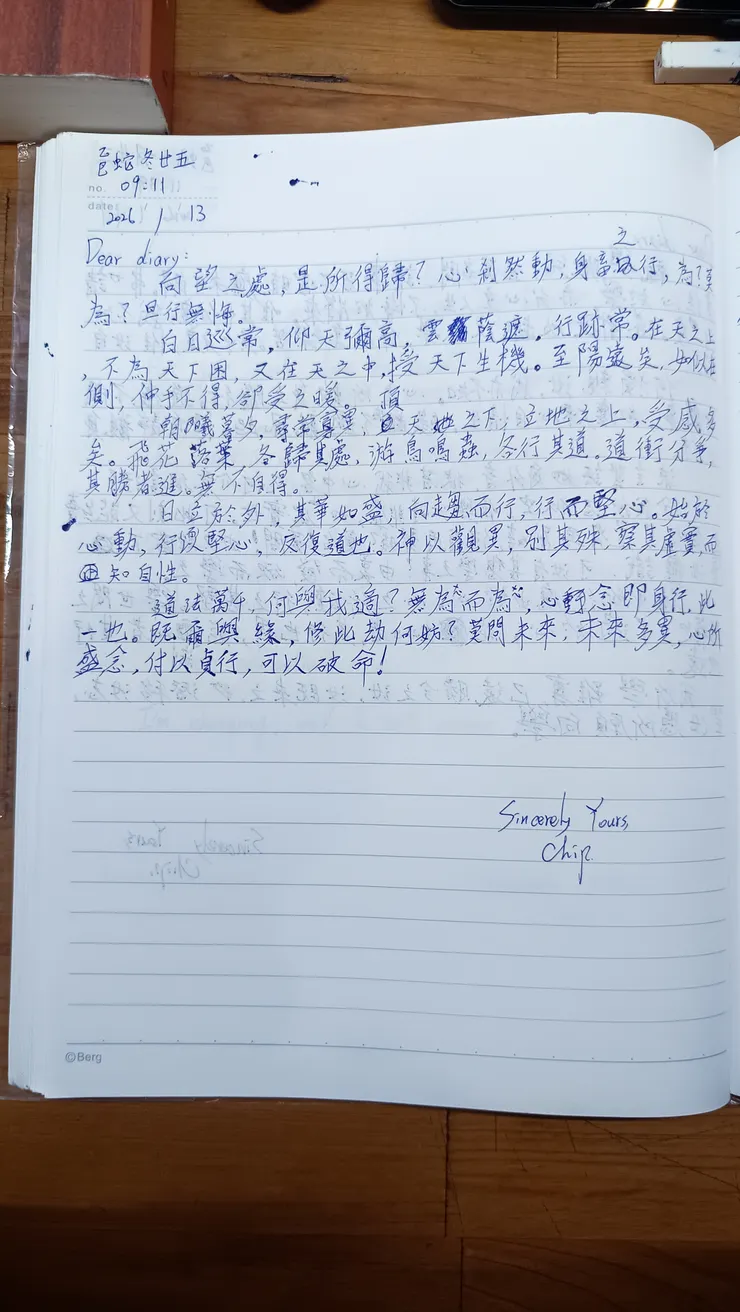 乙巳蛇冬廿五
no. 09:11
date: 2026 / 1 / 13
Dear diary:
向望之處,是所得歸?心剎然動,身畜之行,為?莫
為?但行無悔。
白日巡常,仰天彌高,雲蔭遮。行跡常。在天之上
,不為天下困,又在天之中,接天下生機。至陽盛矣,如似在
側,伸手不得,卻受之暖。
朝曦暮夕,尋常寡異,頂天之下,立地之上,受感多
矣。飛花落葉,各歸其處,游鳥鳴蟲,各行其道。道衝分爭,
其勝者進。無不自得。
日立於外,其華如盛,向趨而行,行而堅心。始於
心動,行後堅心,反復道也。神以觀異,別其殊,察其虛實,而
知自性。
道法萬千,何與我適?無為"而為",心動念即身行,此
一也。既爾與緣,修此劫何妨?莫問未來,未來多異,心所
盛念,付以貞行,可以破命!
Sincerely Yours,
Chip.
©Berg